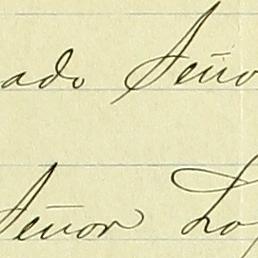 ado Seño
Señor Lo